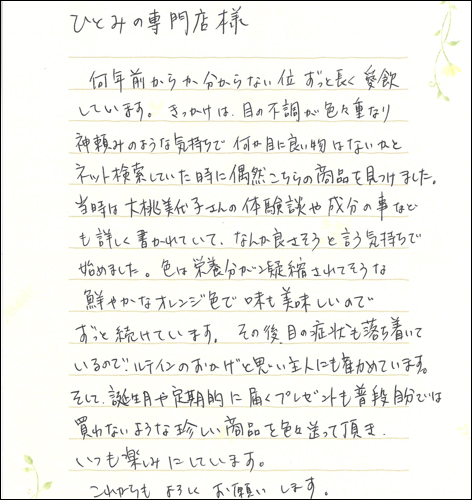 ひとみの専門店様
何年前からか分からない位 ずっと長く愛飲
しています。きっかけは、目の不調が色々重なり
神頼みのような気持ちで何か目に良い物はないかと
ネット検索していた時に偶然こちらの商品を見つけました。
当時は大桃美代子さんの体験談や成分の事など
も詳しく書かれていて、なんか良さそうと言う気持ちで
始めました。色は栄養分が凝縮されてそうな
鮮やかなオレンジ色で味も美味しいので
ずっと続けています。その後、目の症状も落ち着いて
いるので、ルテインのおかげと思い主人にも薦めています。
そして、誕生月や定期的に届くプレゼントも普段自分では
買わないような珍しい商品を色々送って頂き、
いつも楽しみにしています。
これからも よろしく お願い します。